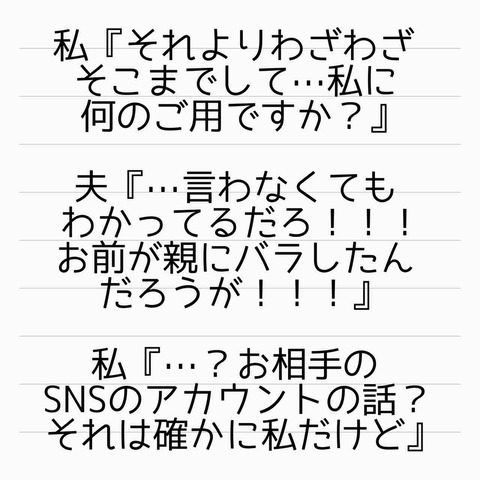 私『それよりわざわざ
そこまでして…私に
何のご用ですか？』
夫『…言わなくても
わかってるだろ！！！
お前が親にバラしたん
だろうが！！！』
私『…？お相手の
SNSのアカウントの話？
それは確かに私だけど』